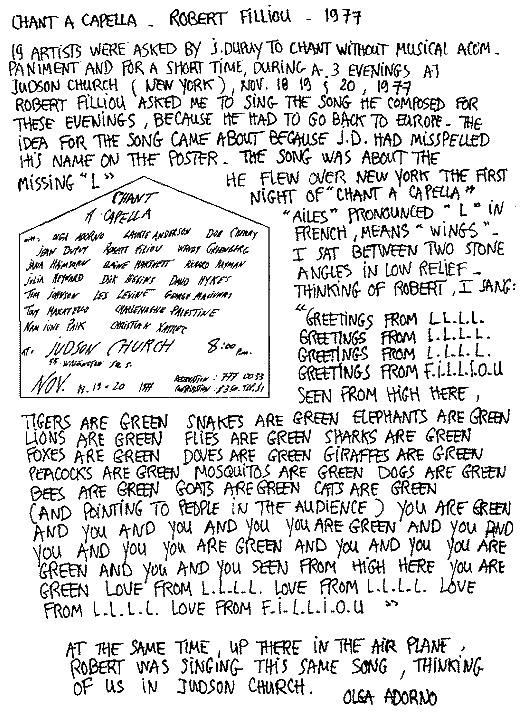 CHANT A CAPELLA - ROBERT FILLIOU - 1977
19 ARTISTS WERE ASKED BY J.DUPUY TO CHANT WITHOUT MUSICAL ACCOM-
PANIMENT AND FOR A SHORT TIME, DURING A 3 EVENINGS AT
JUDSON CHURCH (NEW YORK), NOV. 18 19 & 20, 1977
ROBERT FILLIOU ASKED ME TO SING THE SONG HE COMPOSED FOR
THESE EVENINGS, BECAUSE HE HAD TO GO BACK TO EUROPE - THE
IDEA FOR THE SONG CAME ABOUT BECAUSE J.D. HAD MISSPELLED
HIS NAME ON THE POSTER - THE SONG WAS ABOUT THE
MISSING "L"
CHANT
A CAPELLA
OLGA ADORNO LAURIE ANDERSON DON CHERRY
JEAN DUPUY ROBERT FILIOU WENDY GREENBERG
JANA HAIMSOHN
JULIA HEYWARD DICK HIGGINS DAVID HYKES
TOM JOHNSON LES LEVINE GEORGE MACIUNAS
CHARLEMAGNE PALESTINE
NAM JUNE PAIK CHRISTIAN XATREC
AT: JUDSON CHURCH 8:00 P.M.
55 WASHINGTON SQ. S.
NOV. 18.19-20 1977
RESERVATION: 777 0033
HE FLEW OVER NEW YORK THE FIRST
NIGHT OF "CHANT A CAPELLA"
"AILES" PRONOUNCED "L" IN
FRENCH, MEANS "WINGS"-
I SAT BETWEEN TWO STONE
ANGLES IN LOW RELIEF -
THINKING OF ROBERT, I SANG:
"GREETINGS FROM L.L.L.L.
GREETINGS FROM L.L.L.L.
GREETINGS FROM L.L.L.L.
GREETINGS FROM F.i.L.L.i.O.U
SEEN FROM HIGH HERE,
TIGERS ARE GREEN SNAKES ARE GREEN ELEPHANTS ARE GREEN
LIONS ARE GREEN FLIES ARE GREEN SHARKS ARE GREEN
FOXES ARE GREEN DOVES ARE GREEN GIRAFFES ARE GREEN
PEACOCKS ARE GREEN MOSQUITOS ARE GREEN DOGS ARE GREEN
BEES ARE GREEN GOATS ARE GREEN CATS ARE GREEN
(AND POINTING TO PEOPLE IN THE AUDIENCE) YOU ARE GREEN
AND YOU AND YOU AND YOU YOU ARE GREEN AND YOU AND
YOU AND YOU YOU ARE GREEN AND YOU AND YOU YOU ARE
GREEN AND YOU AND YOU SEEN FROM HIGH HERE YOU ARE
GREEN LOVE FROM L.L.L.L. LOVE FROM L.L.L.L. LOVE
FROM L.L.L.L. LOVE FROM F.i.L.L.i.O.U "
AT THE SAME TIME, UP THERE IN THE AIR PLANE,
ROBERT WAS SINGING THIS SAME SONG, THINKING
OF US IN JUDSON CHURCH.
OLGA ADORNO